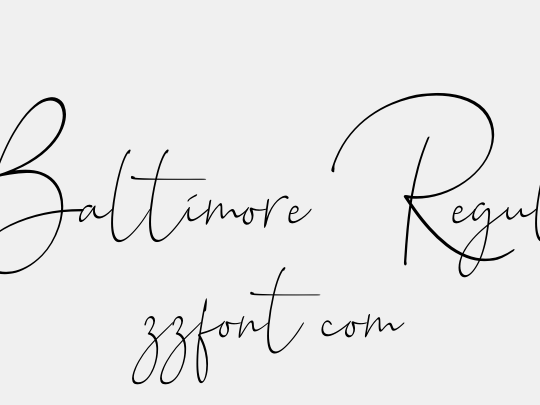 Baltimore Regul
zzfont com